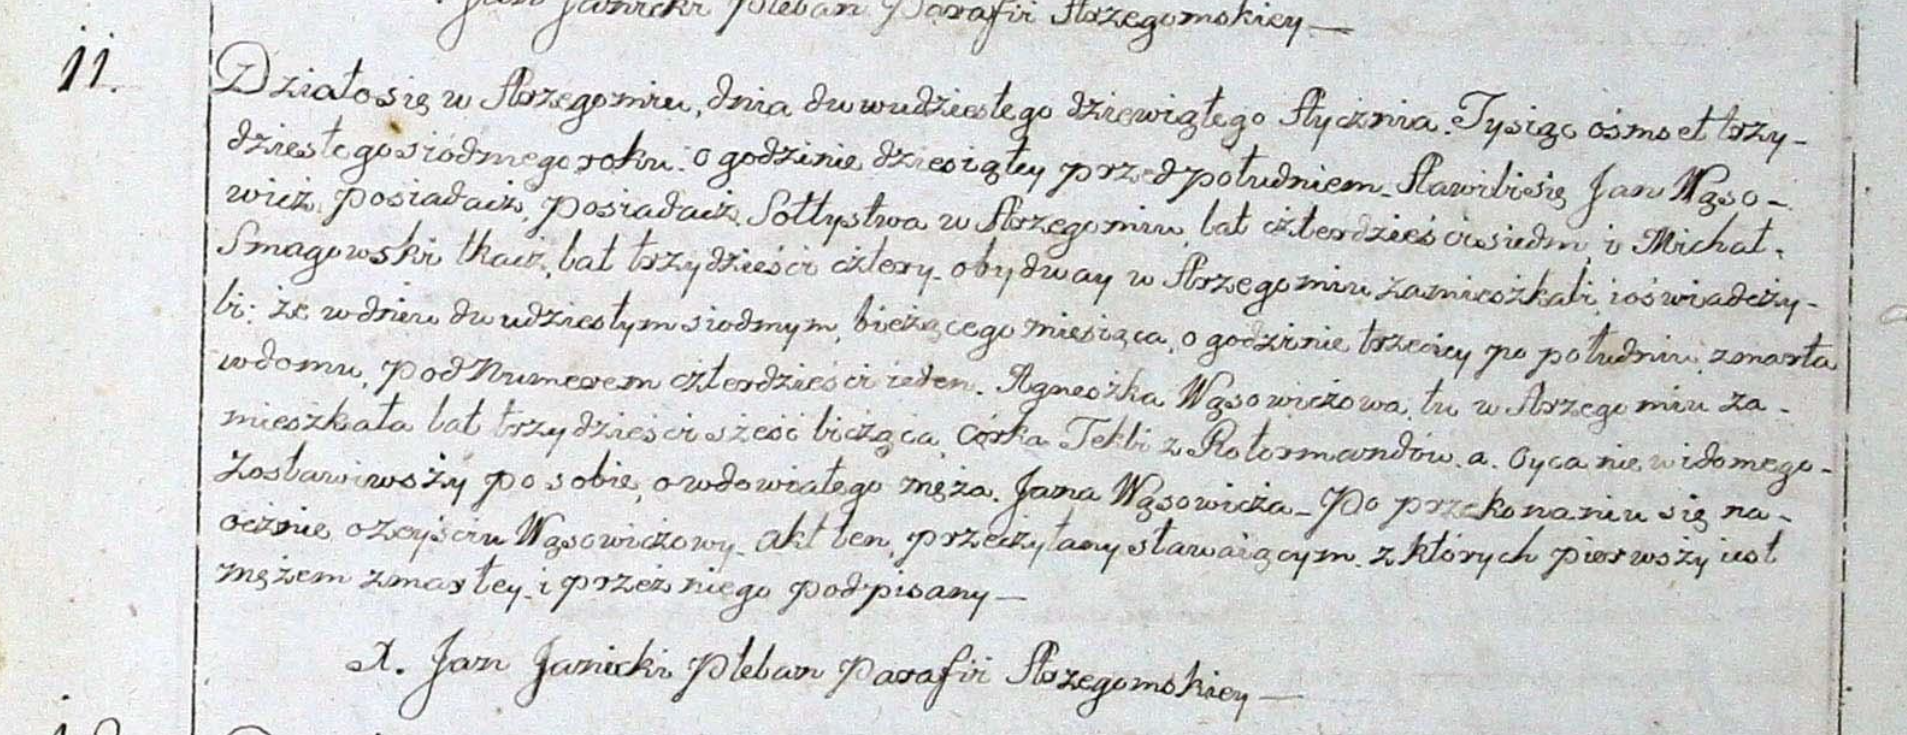 Jan Janicki Pleban Parafii Strzegomskiey —
11.
Działosię w Strzegomiu, dnia duwudziestego dziewiątego Stycznia. Tysiąc ośmset trzy-
dziestego siódmego roku. o godzinie dziesiątey przed południem. Stawilisię Jan Wąso-
wicz, posiadacz, posiadacz Sołtystwa w Strzegomiu, lat czterdzieści siedm, i Michał
Smagowski tkacz, lat trzydzieści cztery. obydway w Strzegomiu zamieszkali, i oświadczy-
li: że w dniu dwudziestym siodmym, bieżącego miesiąca, o godzinie trzeciey po południu, zmarła
w domu, pod Numerem czterdzieści ieden. Agneszka Wąsowiczowa, tu w Strzegomiu za-
mieszkała lat trzydzieści sześć licząca, córka Tekli z Rotormundów. a. Oyca nie widomego-
Zostawiwszy po sobie, owdowiałego męża. Jana Wąsowicza — Po przekonaniu się na-
ocznie o zeyściu Wąsowiczowy. akt ten, przeczytany stawaiącym. z których pierwszy iest
mężem zmarłey. i przez niego podpisany —
X. Jan Janicki Pleban Parafii Strzegomskiey —